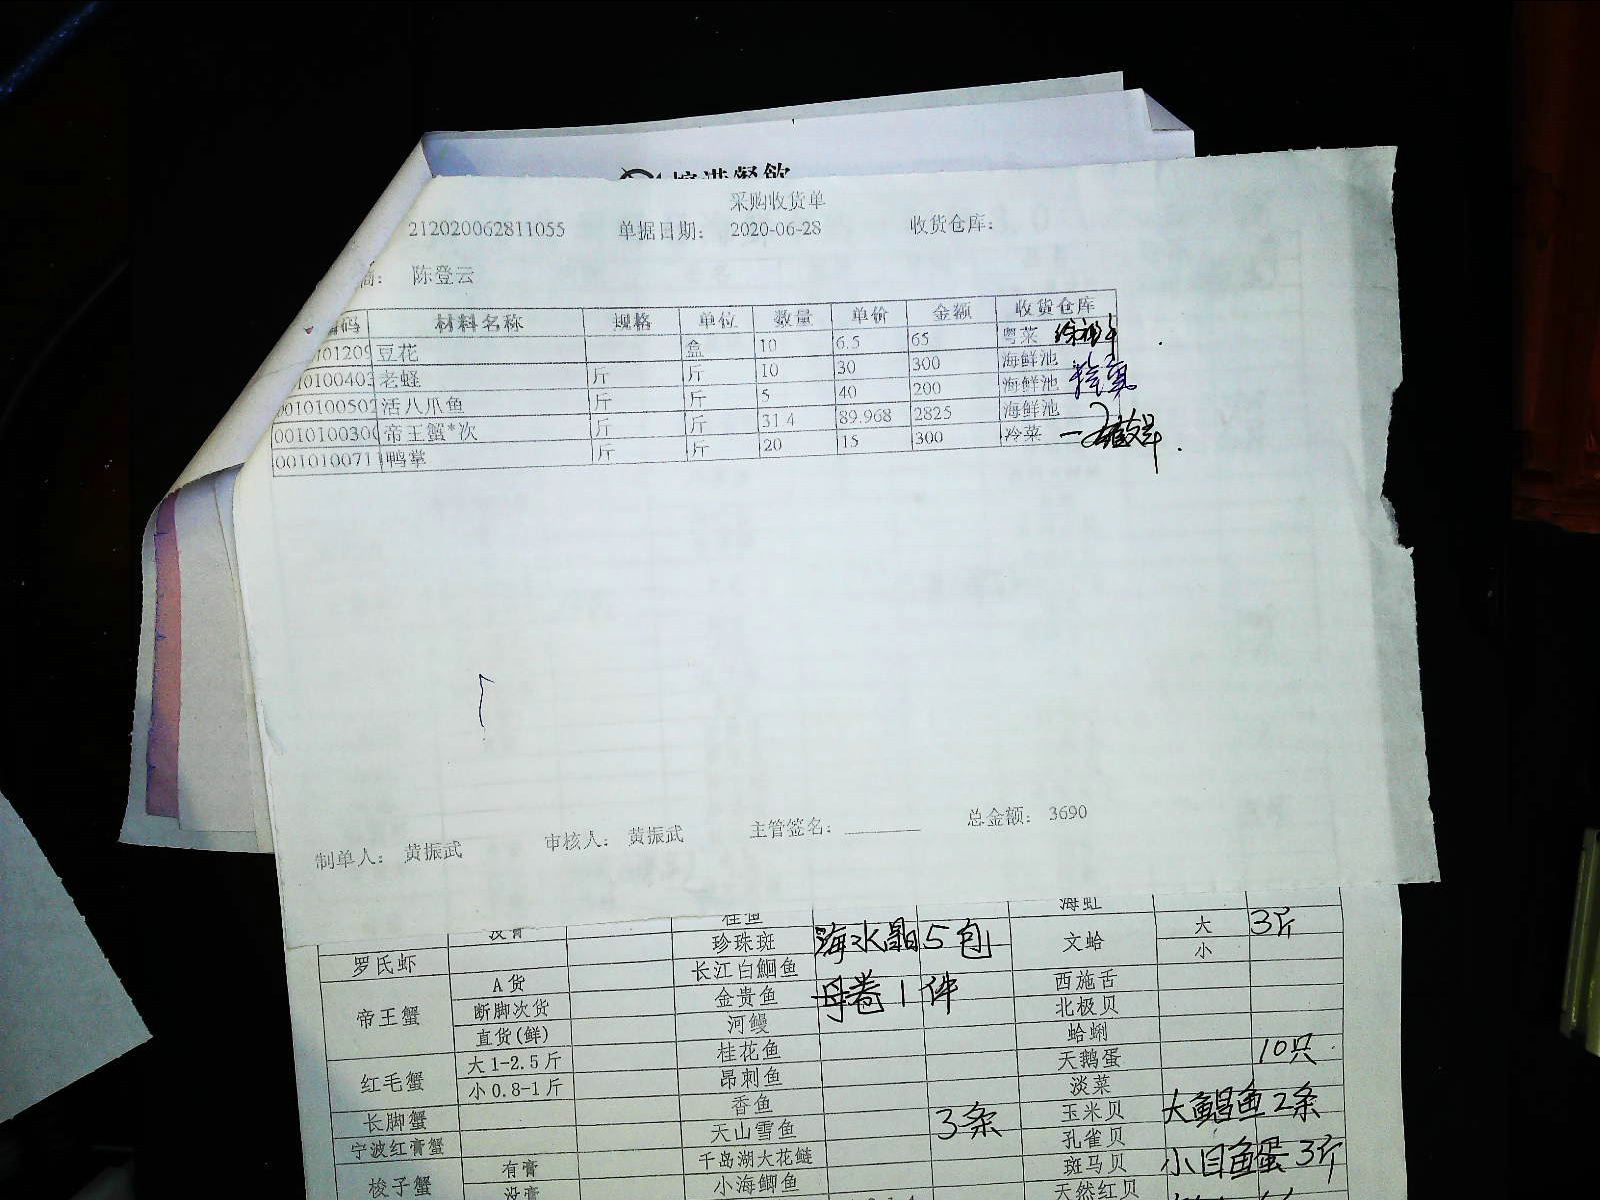 餐飲
采购收货单
212020062811055 单据日期： 2020-06-28 收货仓库：
商： 陈登云
编码 材料名称 规格 单位 数量 单价 金额 收货仓库
豆花 盒 10 6.5 65 粤菜
老蛏 斤 斤 10 30 300 海鲜池
活八爪鱼 斤 斤 5 40 200 海鲜池
帝王蟹*次 斤 斤 31.4 89.968 2825 海鲜池
001010071 鸭掌 斤 斤 20 15 300 冷菜
制单人： 黄振武 审核人： 黄振武 主管签名： 总金额： 3690
桂鱼 海虹
没膏 珍珠斑 海水晶 5包 文蛤 大 3斤
罗氏虾 长江白鮰鱼 小
帝王蟹 A货 金贵鱼 1件 西施舌
断脚次货 河鳗 北极贝
直货(鲜) 桂花鱼 蛤蜊
红毛蟹 大1-2.5斤 昂刺鱼 天鹅蛋 10只
小0.8-1斤 香鱼 淡菜
长脚蟹 天山雪鱼 3条 玉米贝 大鲳鱼2条
宁波红膏蟹 千岛湖大花鲢 孔雀贝
梭子蟹 有膏 小海鲫鱼 斑马贝 小目鱼蛋3斤
没膏 天然红贝